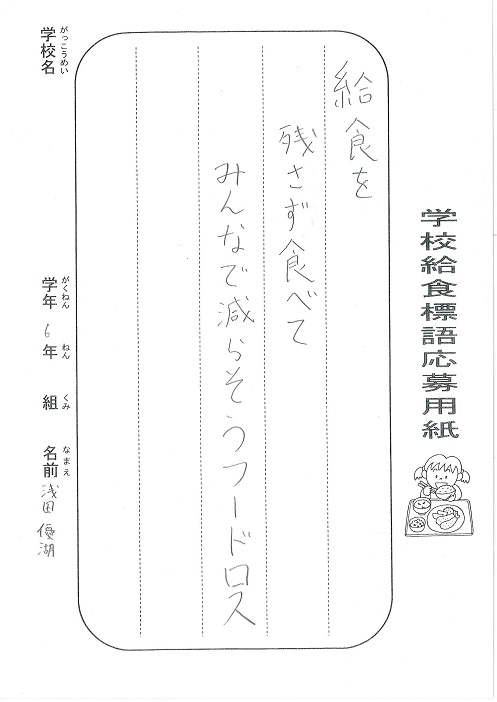 学校給食標語応募用紙
給食を
残さず食べて
みんなで減らそうフードロス
学校名 がっこうめい
学年 がくねん 6年 ねん 組 くみ 名前 なまえ 浅田 優湖